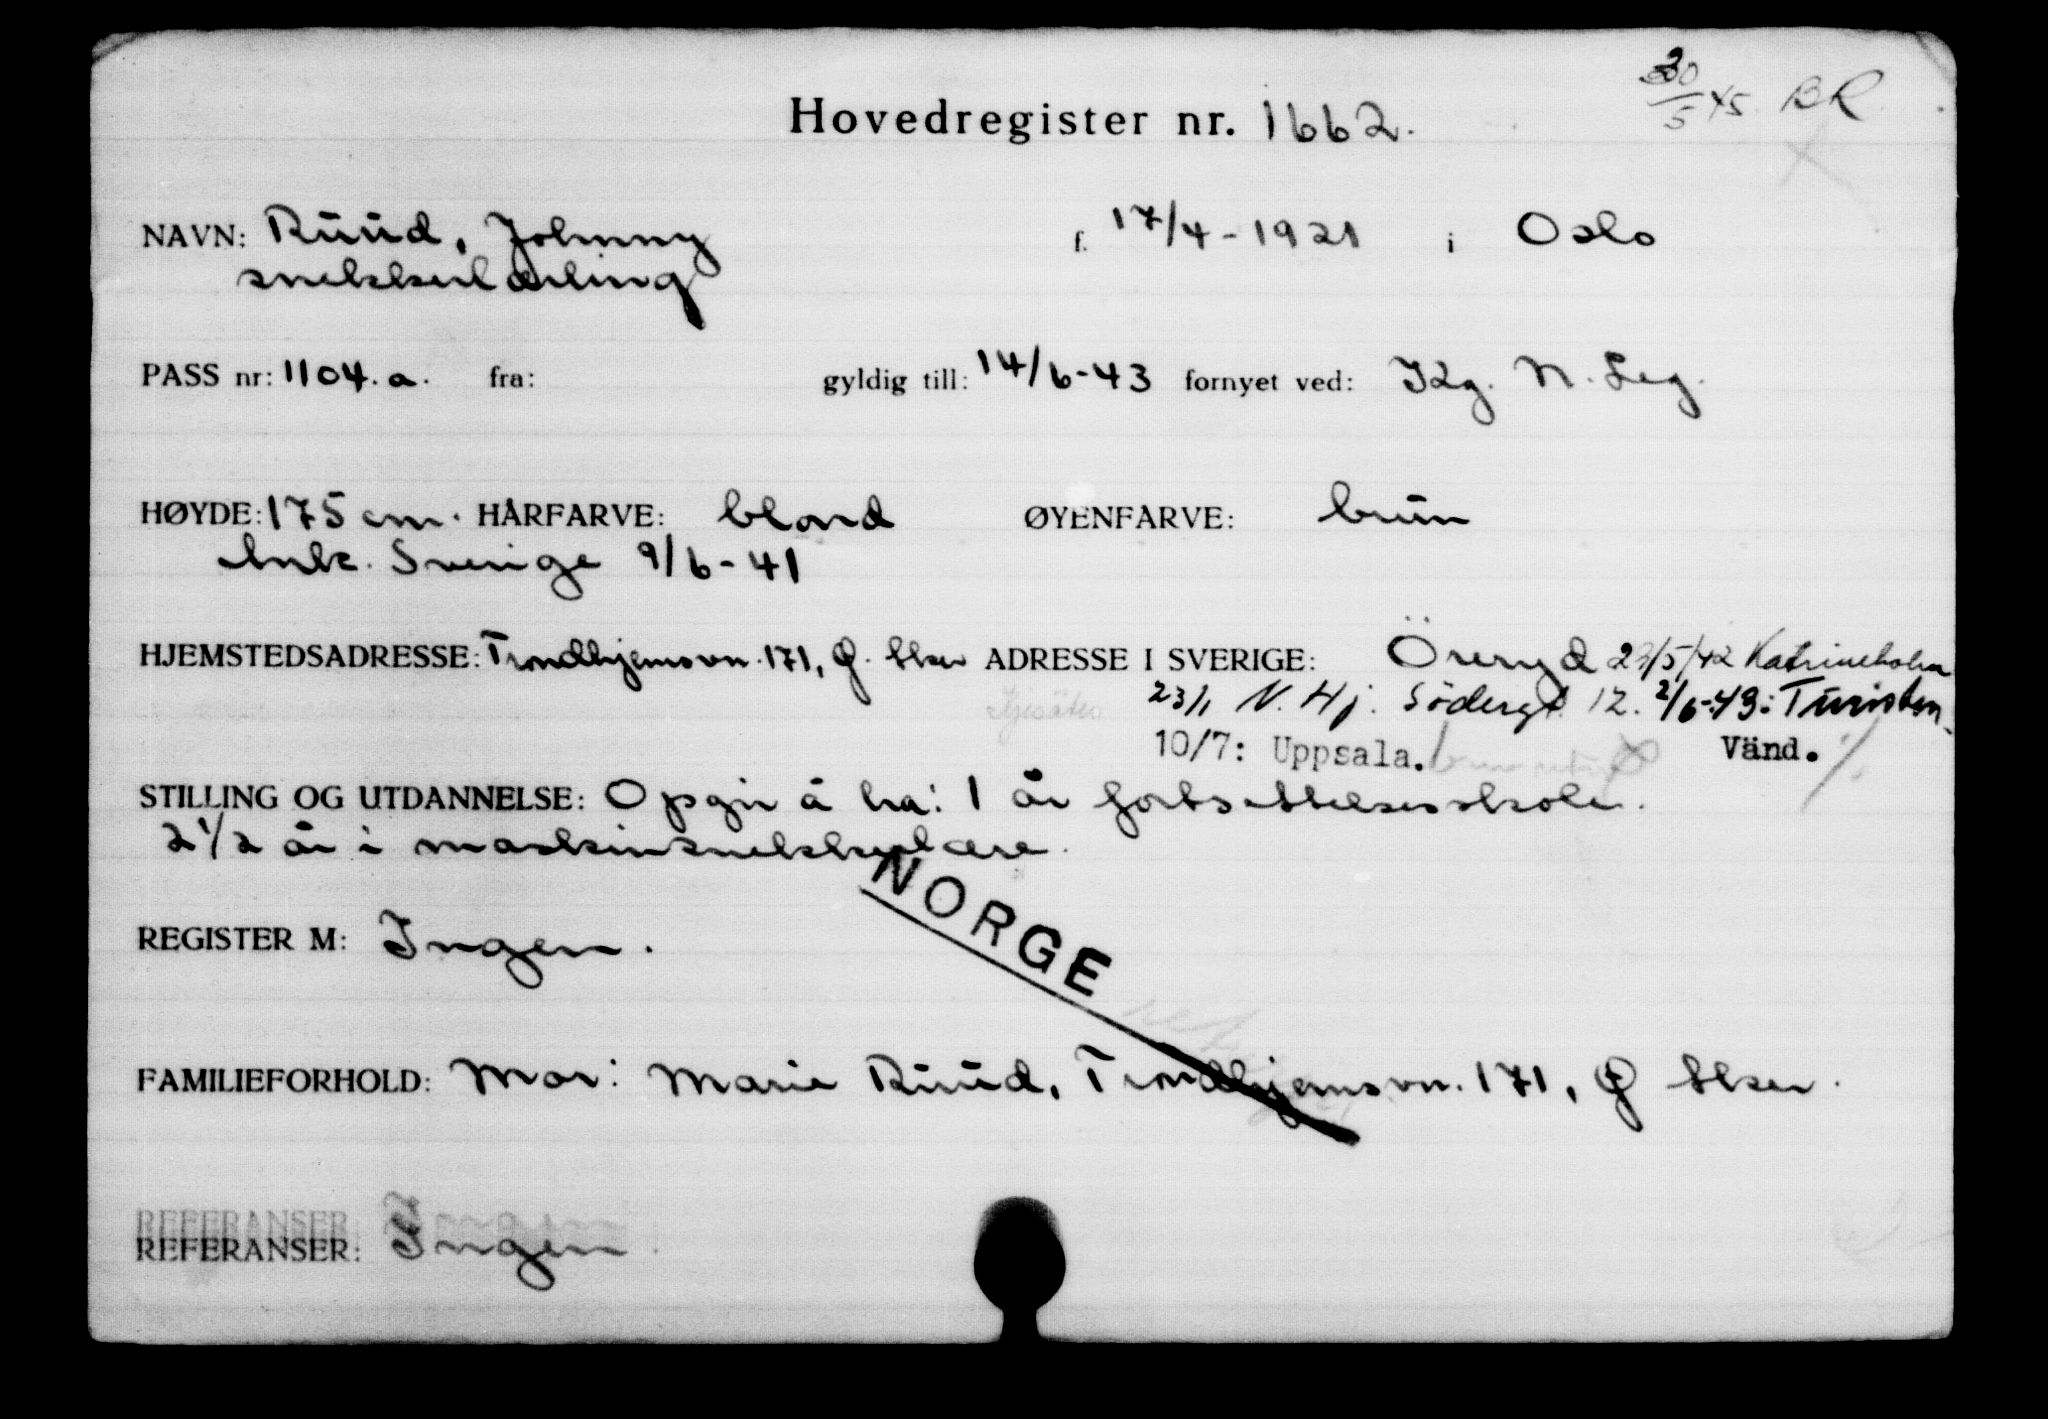 30/5 45. BR
Hovedregister nr. 1662.
NAVN: Ruud, Johnny f. 17/4-1921 i Oslo
snekkerlærling
PASS nr: 1104.a. fra: gyldig till: 14/6-43 fornyet ved: Kg. N. Leg.
HØYDE: 175 cm. HÅRFARVE: blond ØYENFARVE: brun
Ank. Sverige 9/6-41
HJEMSTEDSADRESSE: Trondhjemsvn. 171, Ø. Aker ADRESSE I SVERIGE: Öreryd 23/5/42 Katrineholm
23/1 N. Hj. Södergt. 12. 2/6-43: Turisten
10/7: Uppsala. Vänd. ./.
STILLING OG UTDANNELSE: Opgir å ha: 1 år fortsettelsesskole.
2 1/2 år i maskinsnekkerlære.
NORGE
REGISTER M: Ingen.
FAMILIEFORHOLD: Mor: Marie Ruud, Trondhjemsvn. 171, Ø Aker.
REFERANSER: Ingen.